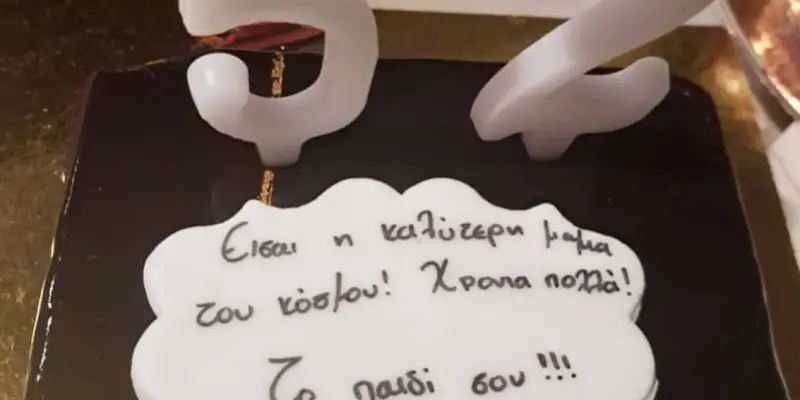 Εισαι η καλύτερη μαμα
του κόσμου! Χρονια πολλά!
Το παιδί σου!!!